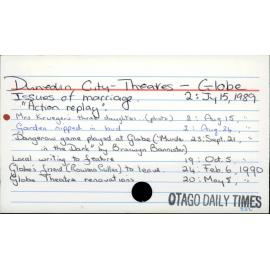 Dunedin City - Theatres - Globe
Issues of marriage. 2: Jy 15, 1989
"Action replay".
Mrs Krueger's three daughters (photo) 8: Aug 15, "
Garden nipped in bud 3: Aug 24, "
Dangerous game played at Globe ("Murder 23: Sept. 21, "
in the Dark" by Bronwyn Bannister)
Local writing to feature 19: Oct. 5, "
Globe's friend (Rowena Cullen) to leave. 24: Feb. 6, 1990
Globe Theatre renovations 20: May 8, "
OTAGO DAILY TIMES